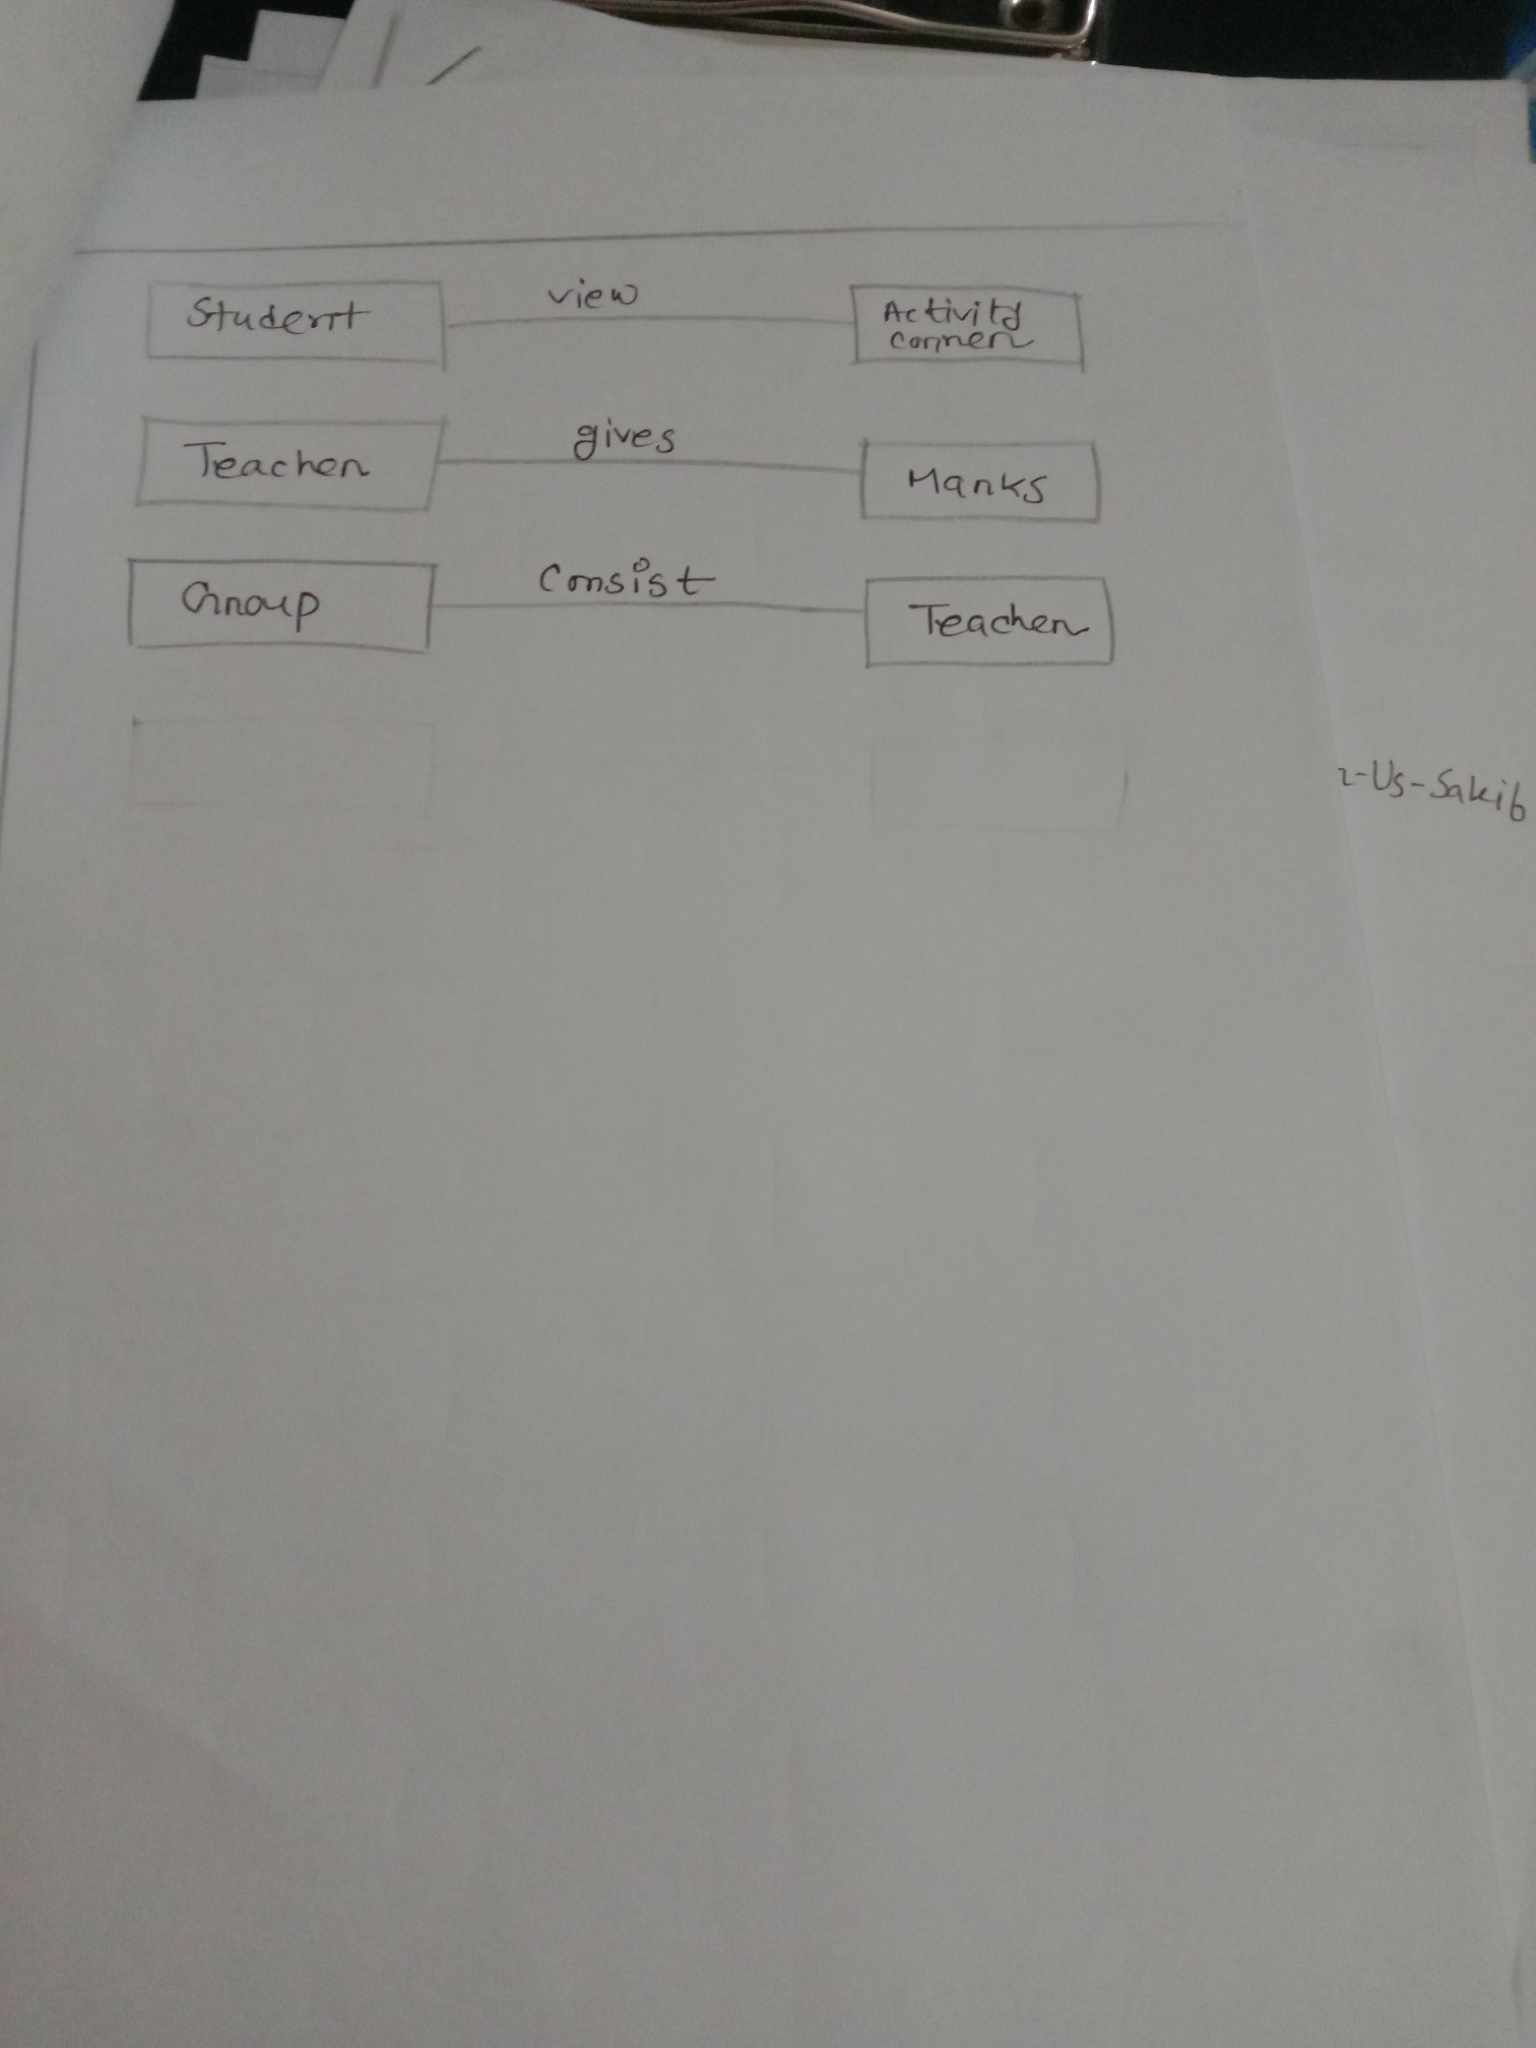 Student
view
Activity
corner
Teacher
gives
Marks
Group
Consist
Teacher
-Us-Sakib